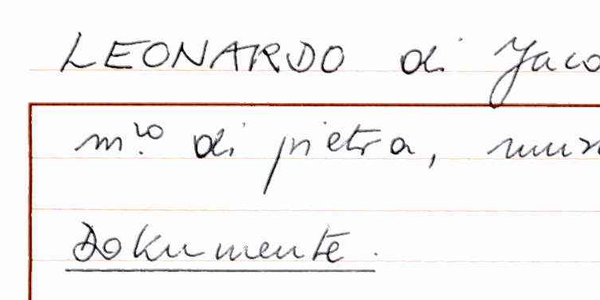 LEONARDO di Jaco
m.ro di pietra, mur
Dokumente.